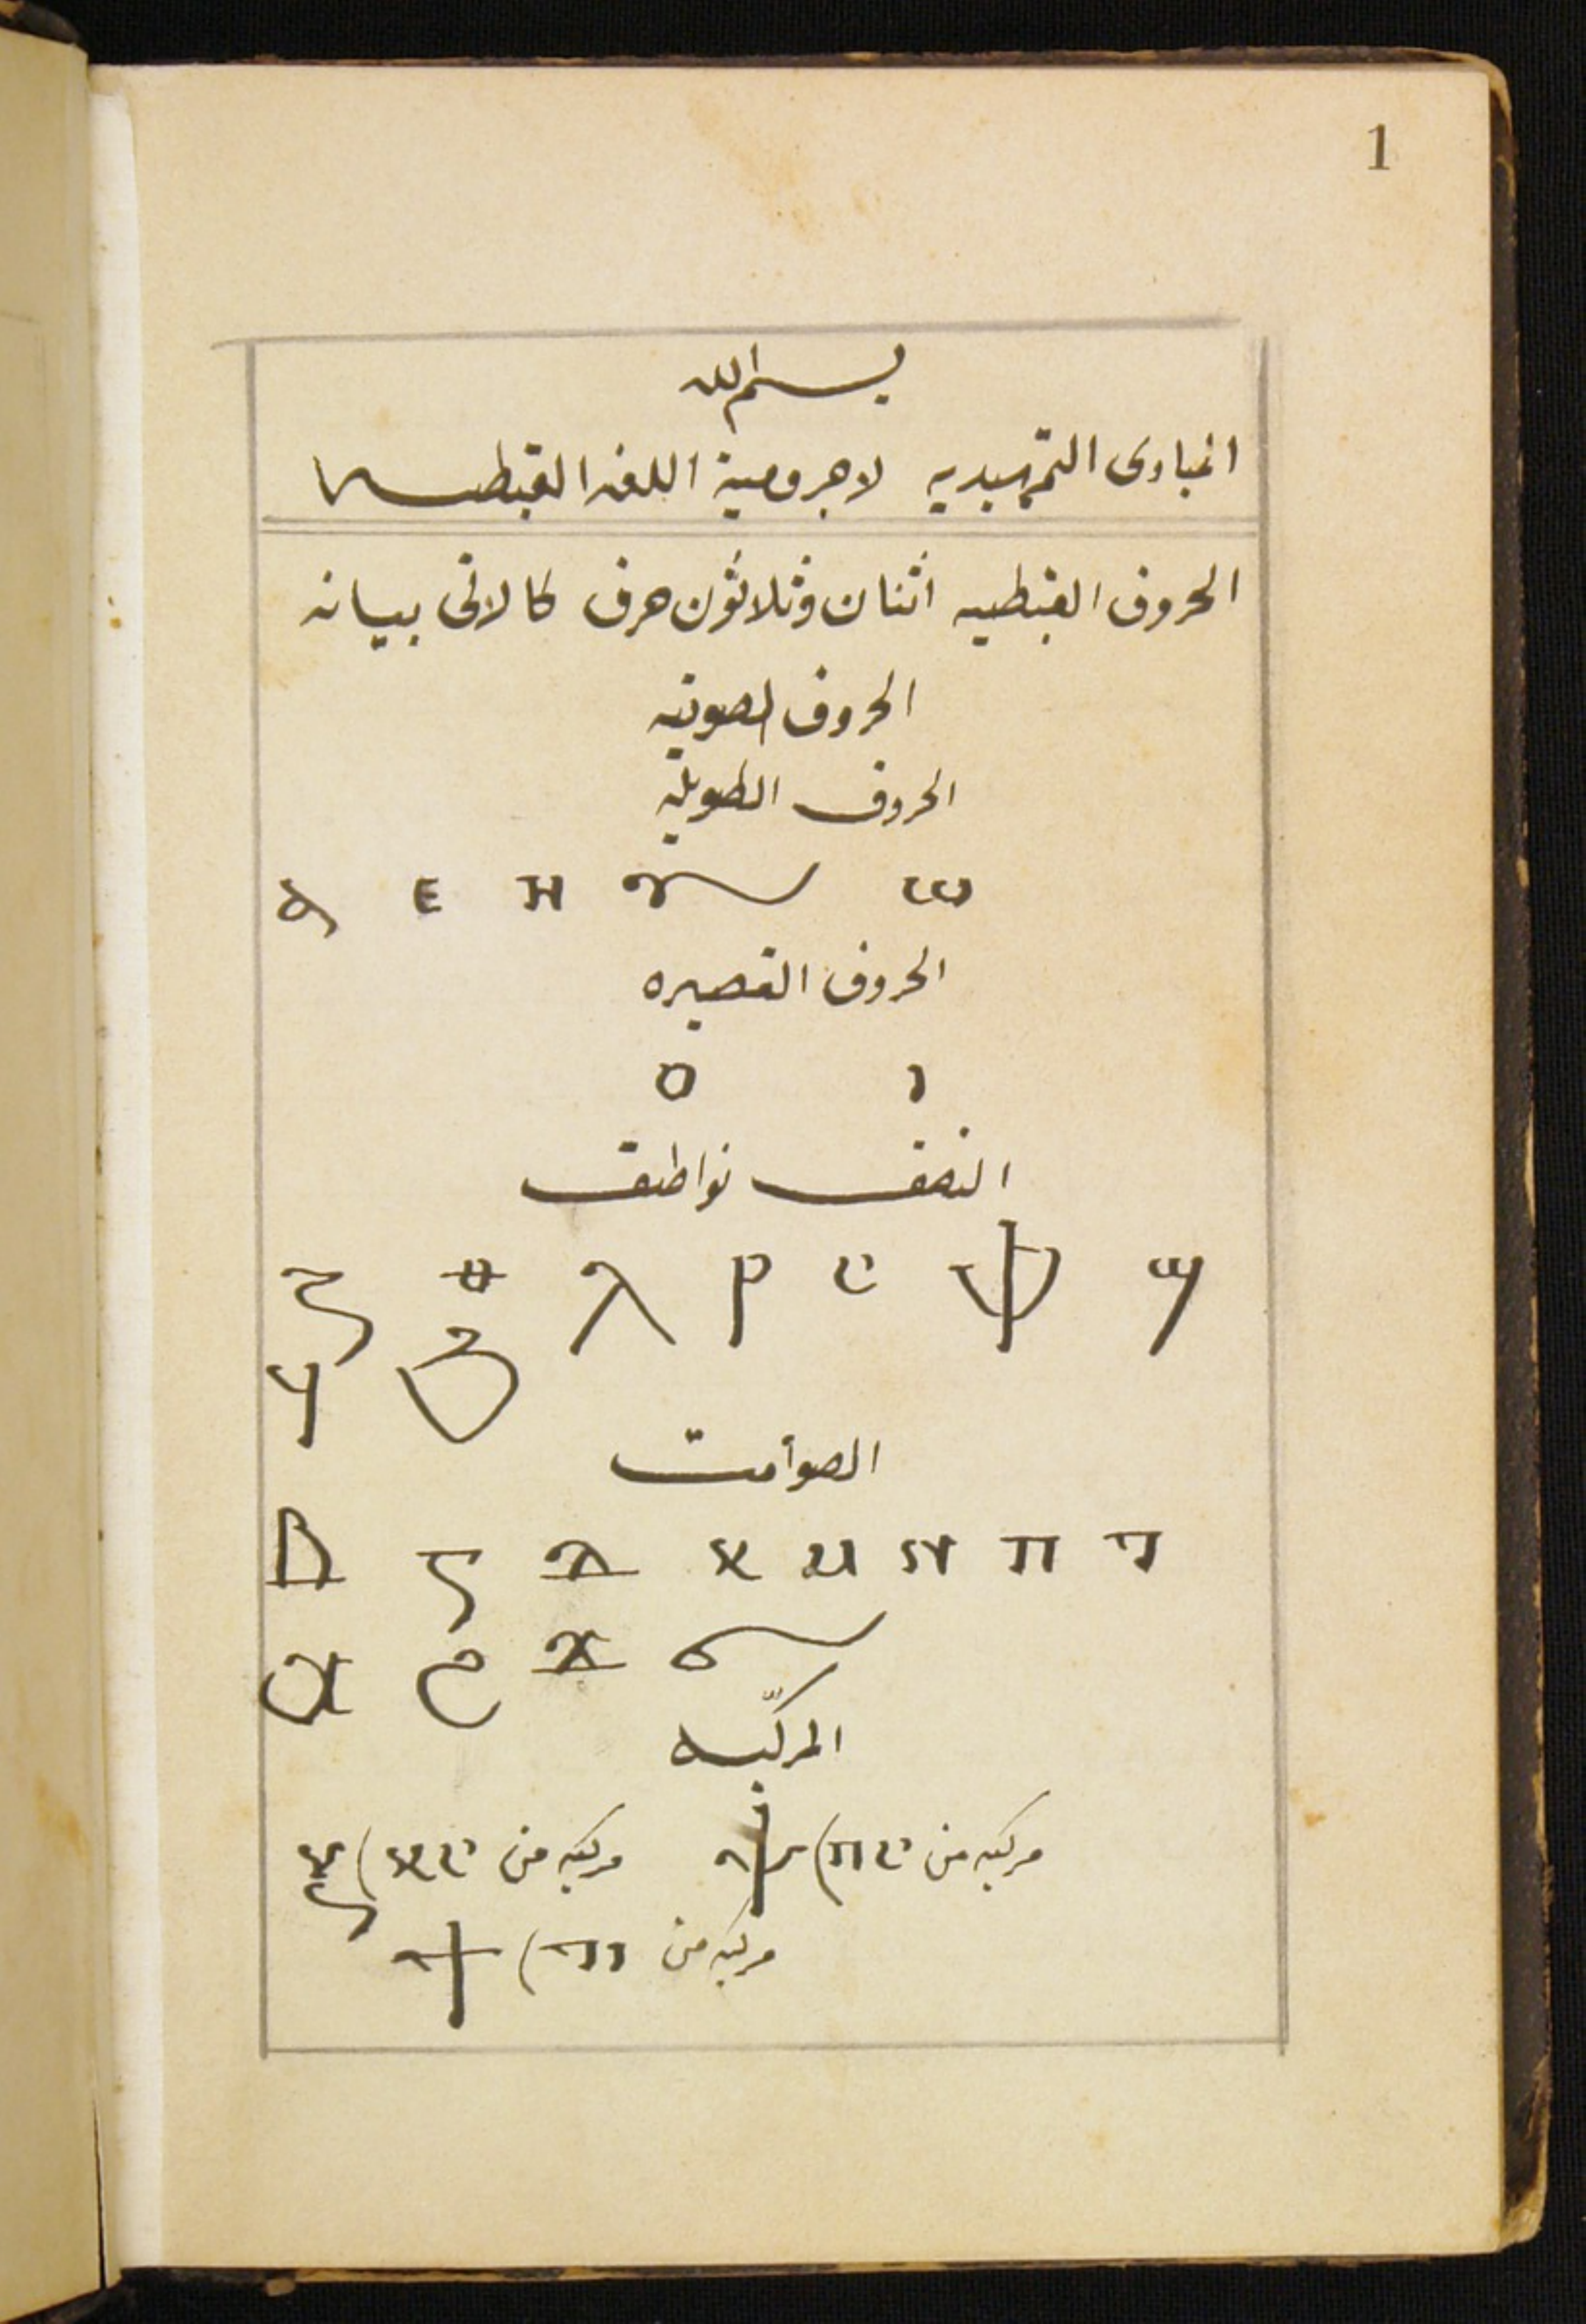 1
بسم الله
المبادى التمهيديه لاجرومية اللغه القبطيه
الحروف القبطيه اثنان وثلاثون حرف كالاتى بيانه
الحروف الصوتيه
الحروف الطويلة
ⲁ ⲉ ⲏ ⲱ
الحروف القصيره
ⲟ ⲓ
النصف نواطق
ⲍ ⲑ ⲗ ⲣ ⲥ ⲫ ϣ
ϥ ϩ
الصوامت
ⲃ ⲅ ⲇ ⲕ ⲙ ⲛ ⲡ ⲧ
ⲭ ϧ ϫ ϭ
المركبه
ⲝ (ⲕⲥ مركبه من ⲯ (ⲡⲥ مركبه من
ϯ (ⲧⲓ مركبه من